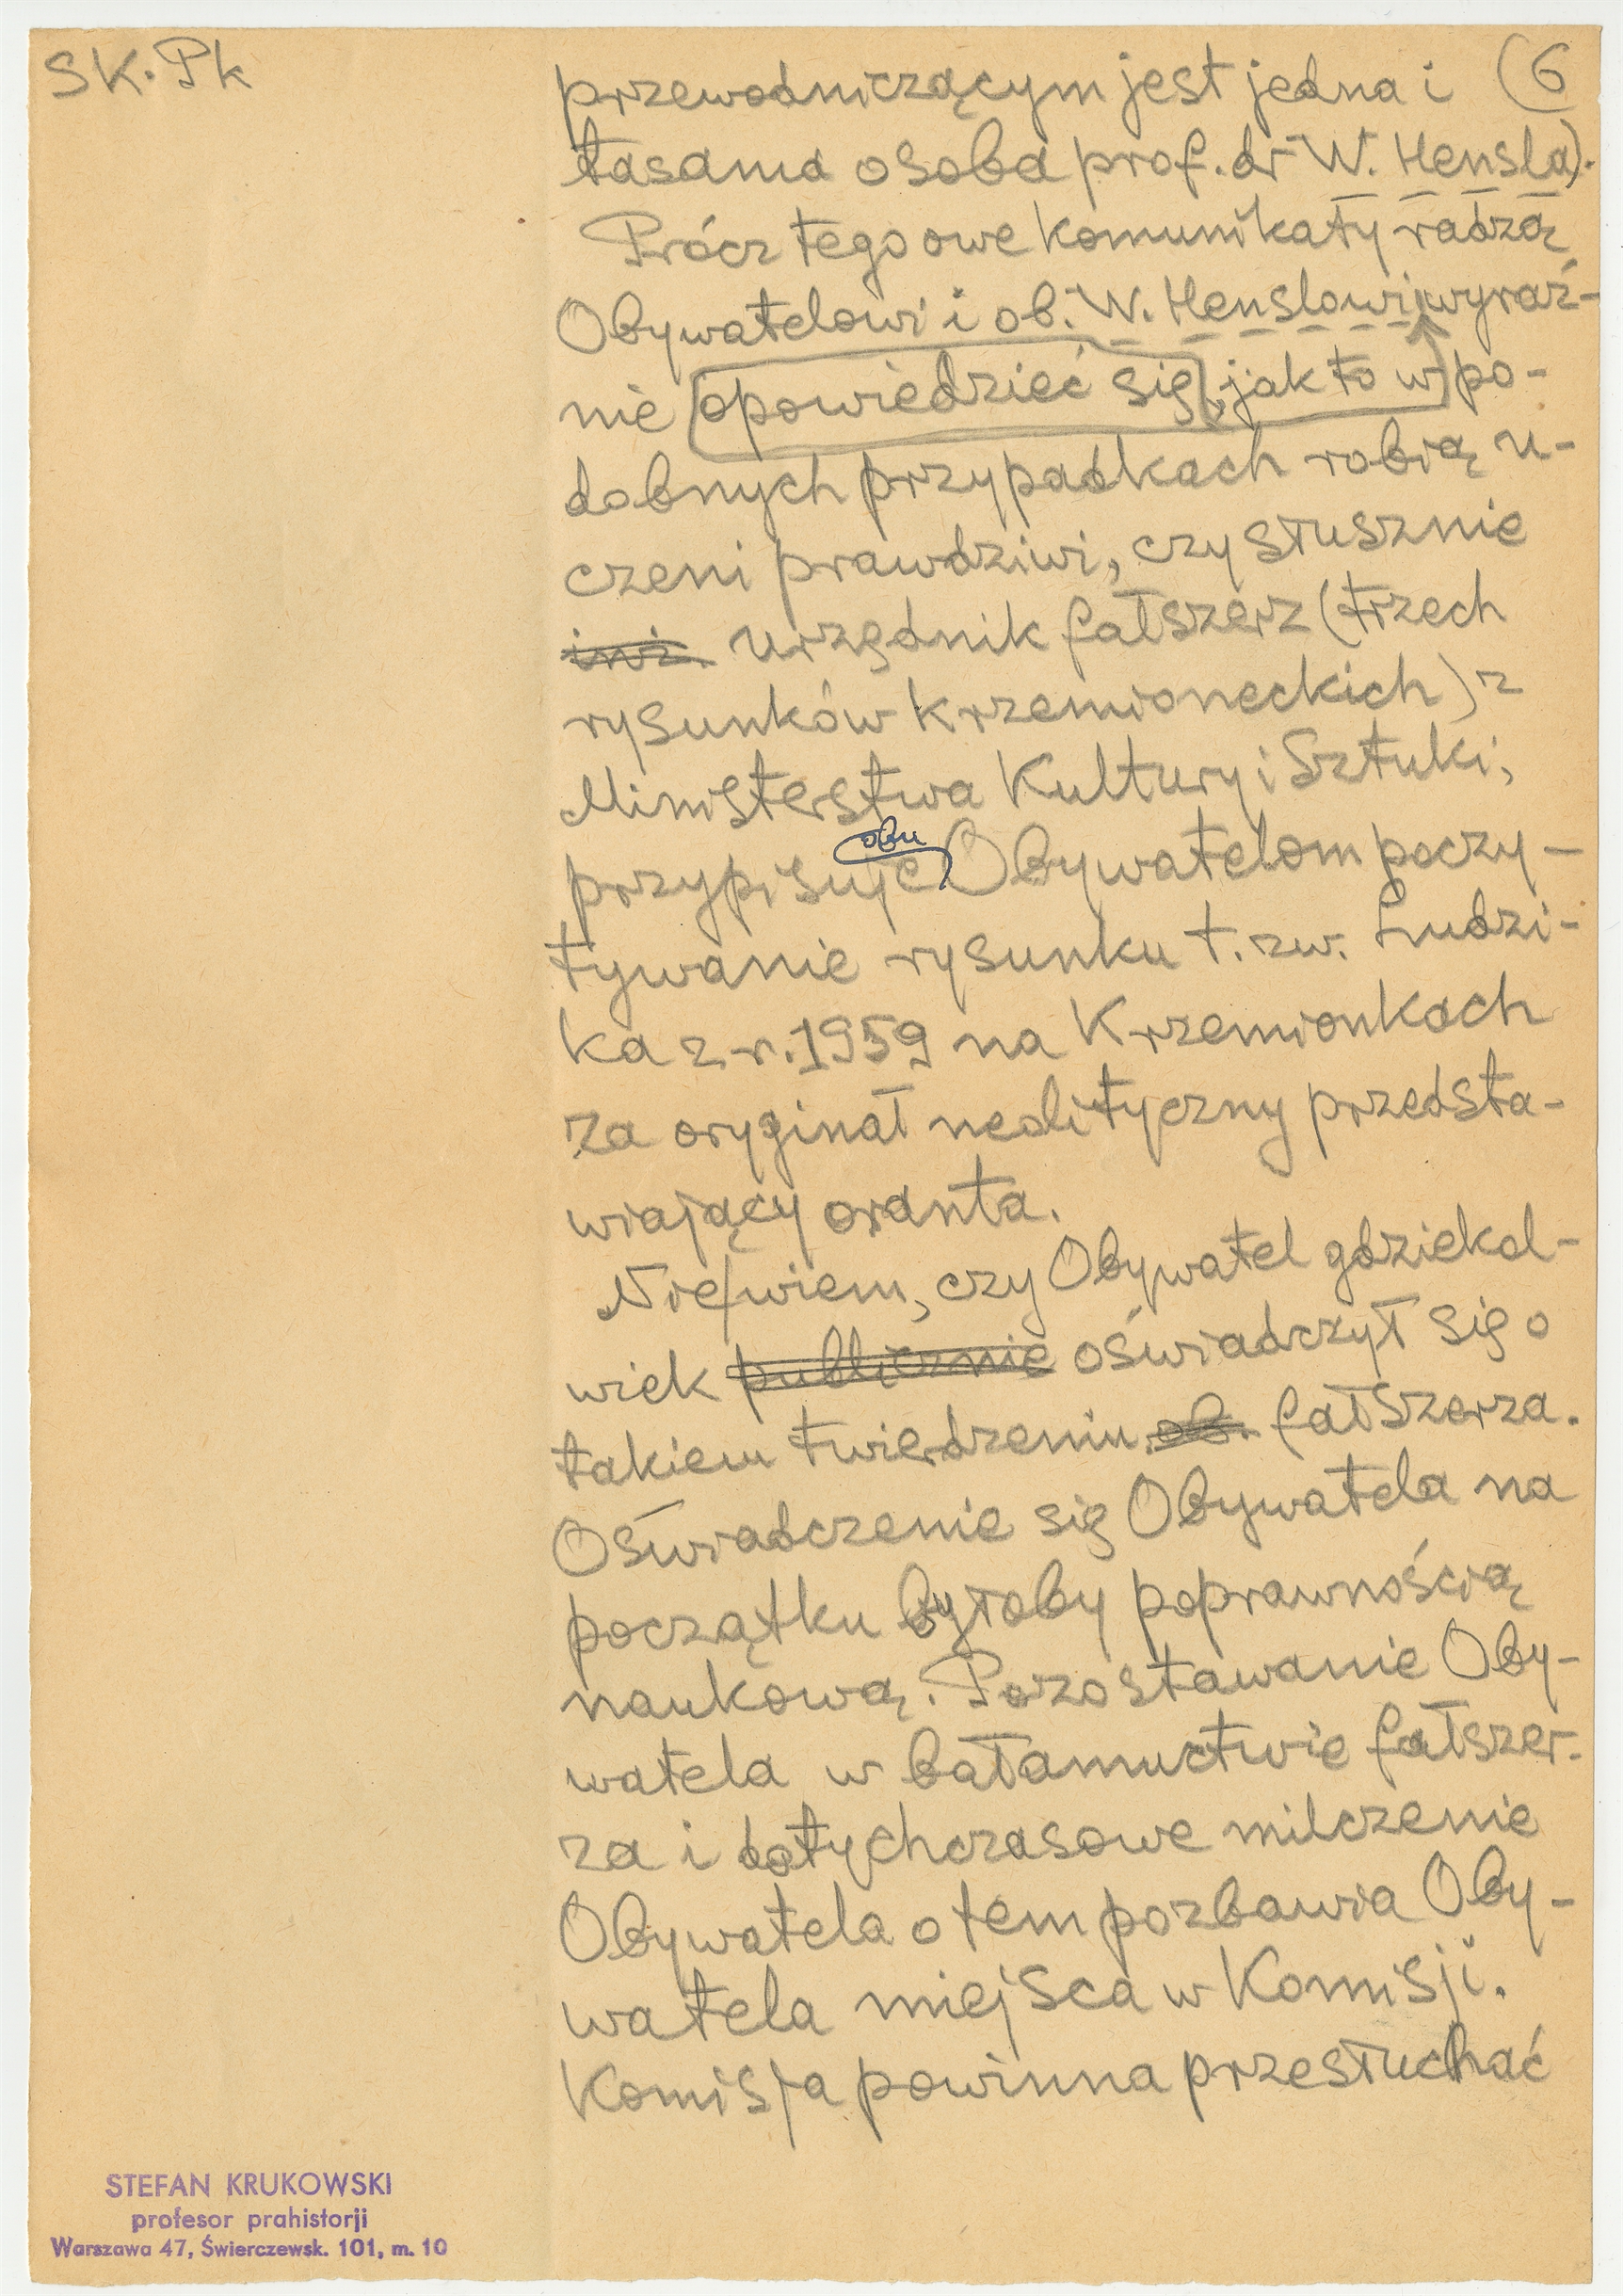 SK. Pk
(6
przewodniczącym jest jedna i
tasama osoba prof. dr W. Hensla).
Prócz tego owe komunikaty radzą
Obywatelowi i ob. W. Henslowi wyraź-
nie opowiedzieć się, jak to w po-
dobnych przypadkach robią u-
czeni prawdziwi, czy słusznie
inż. urzędnik fałszerz (trzech
rysunków krzemioneckich) z
Ministerstwa Kultury i Sztuki,
obu
przypisuje Obywatelom poczy-
tywanie rysunku t. zw. Ludzi-
ka z r. 1959 na Krzemionkach
za oryginał neolityczny przedsta-
wiający oranta.
Nie/wiem, czy Obywatel gdziekol-
wiek publicznie oświadczył się o
takiem twierdzeniu ob. fałszerza.
Oświadczenie się Obywatela na
początku byłoby poprawnością
naukową. Pozostawanie Oby-
watela w bałamuctwie fałszer-
za i dotychczasowe milczenie
Obywatela o tem pozbawia Oby-
watela miejsca w Komisji.
Komisja powinna przesłuchać
STEFAN KRUKOWSKI
profesor prahistorji
Warszawa 47, Świerczewsk. 101, m. 10